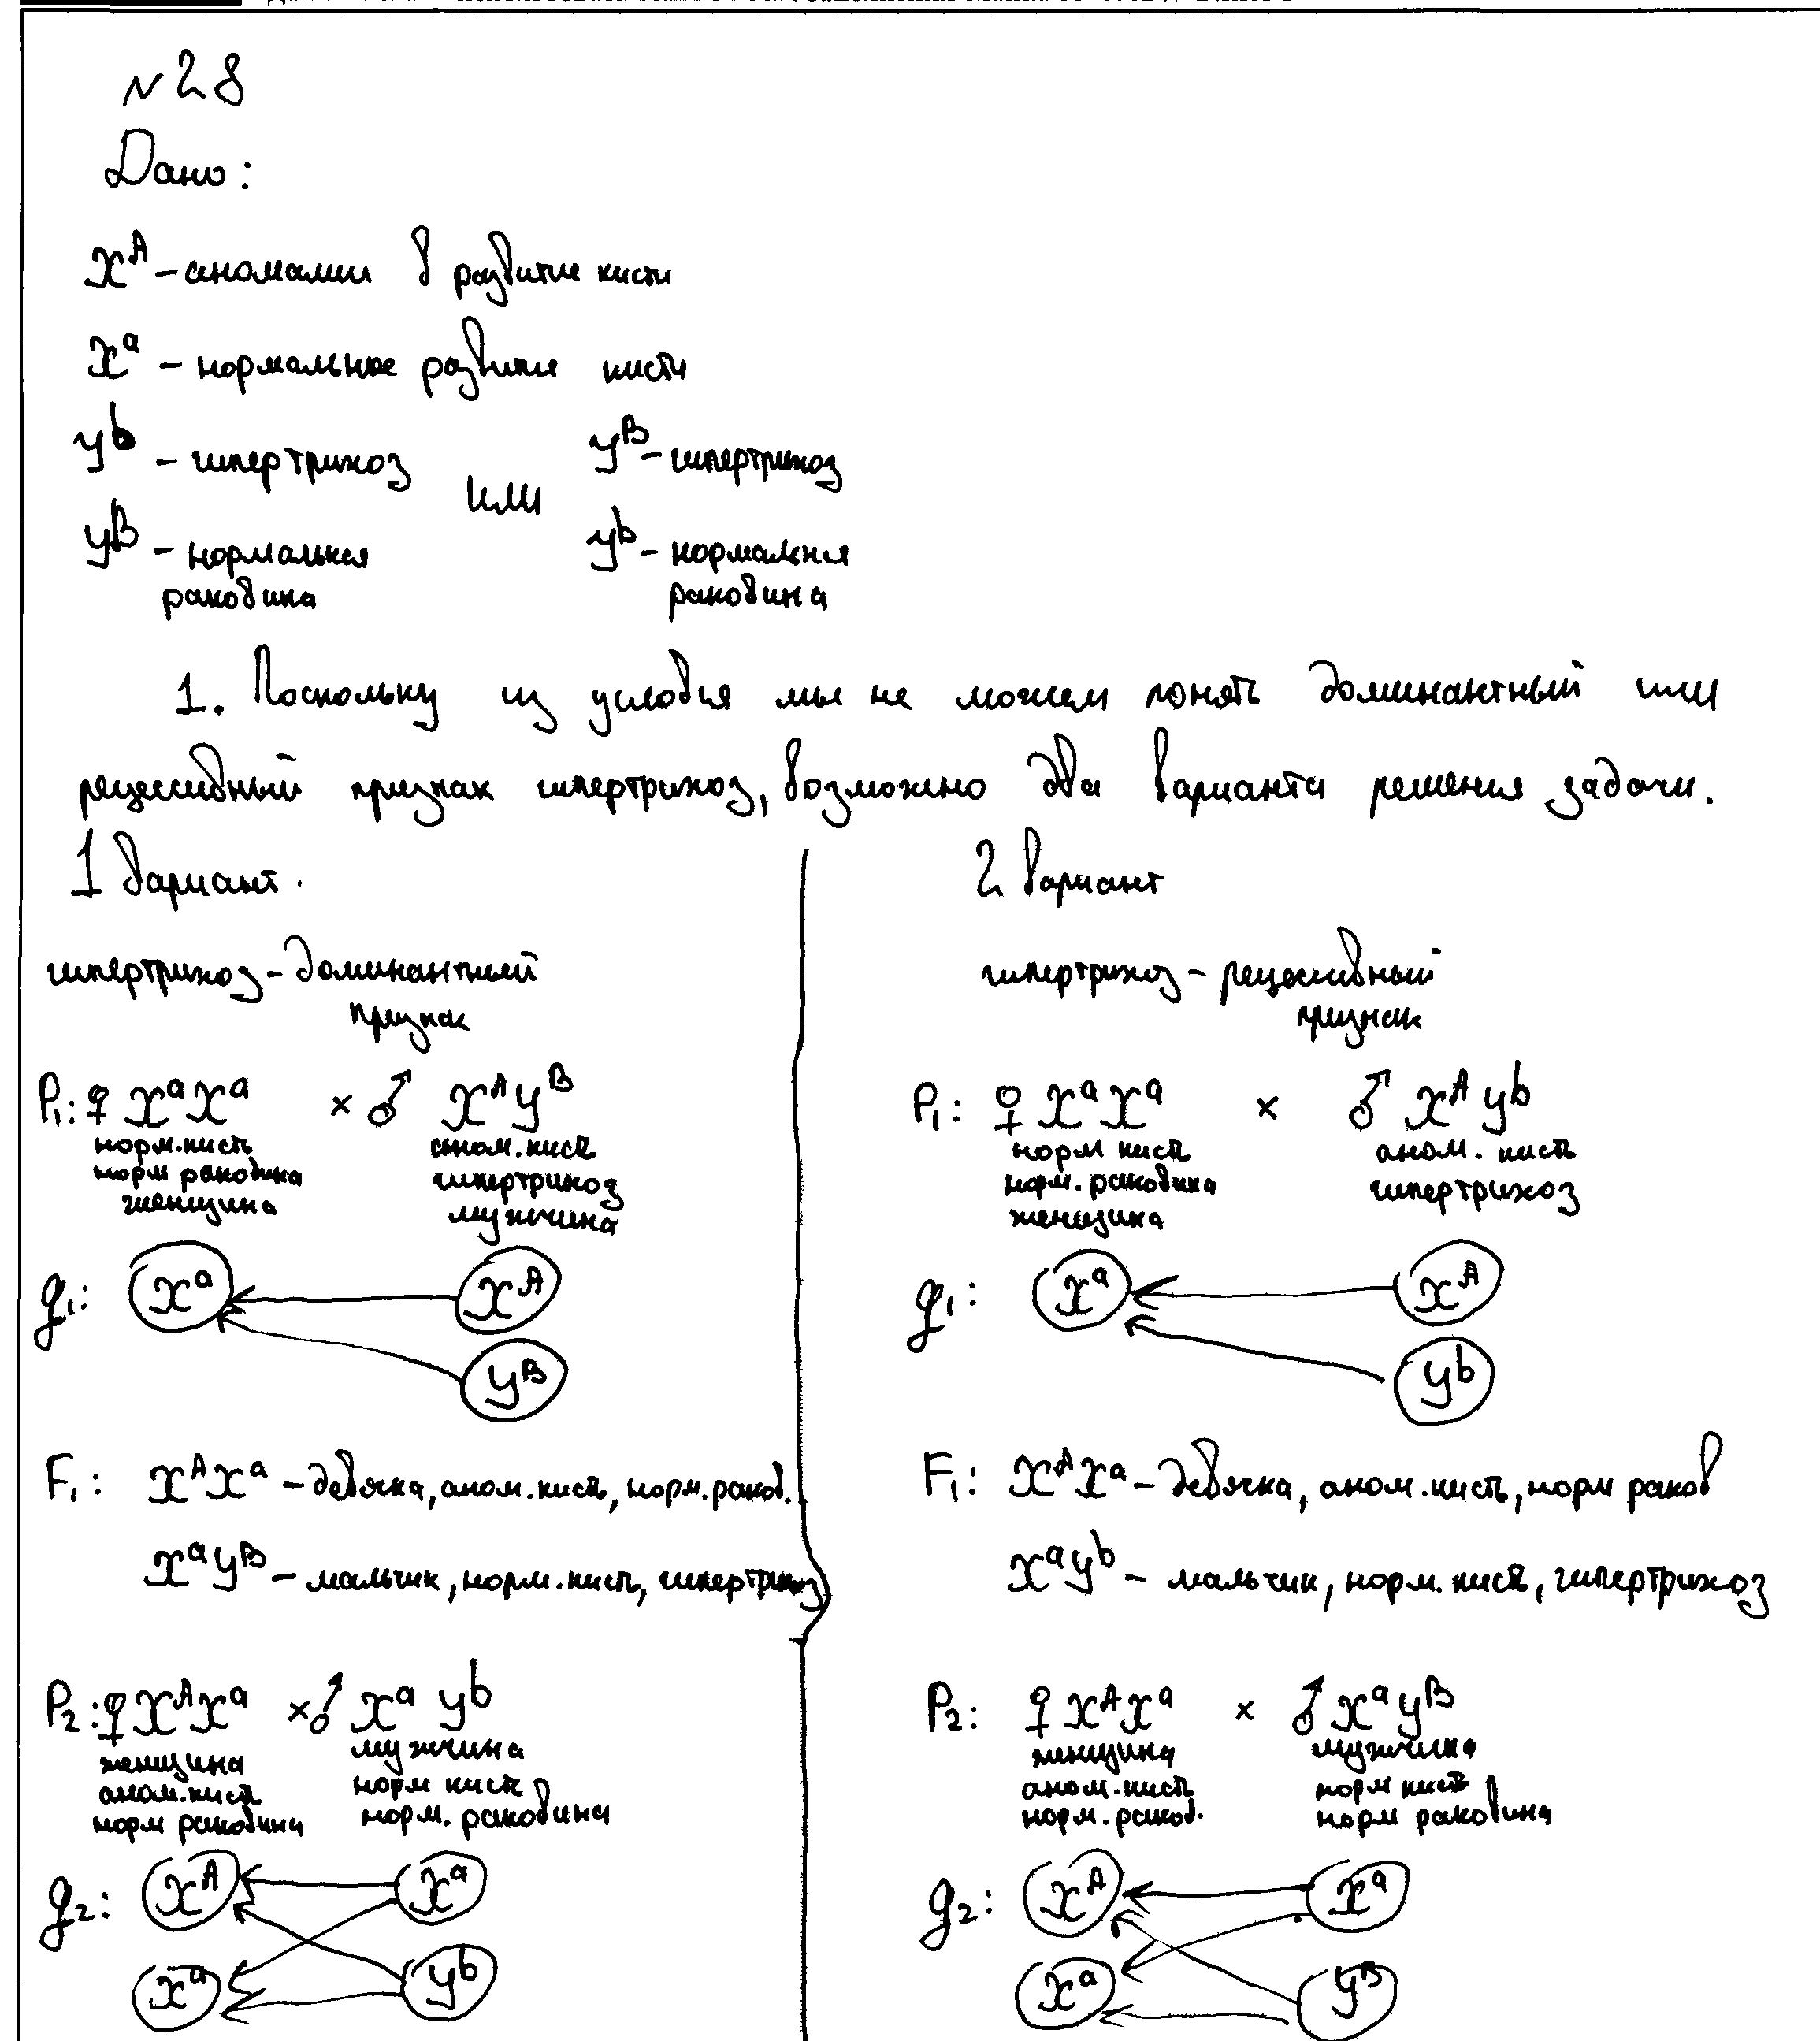 №28
Дано:
X^A – аномалии в развитие кисти
X^a – нормальное развитие кисти
Y^b – гипертрихоз или Y^B – гипертрихоз
Y^B – нормальная раковина Y^b – нормальня раковина
1. Поскольку из условия мы не можем понять доминантный или
рецессивный признак гипертрихоз, возможно два варианта решения задачи.
1 вариант.
гипертрихоз – доминантный
признак
P₁: ♀ X^a X^a × ♂ X^A Y^B
норм. кисть аном. кисть
норм раковина гипертрихоз
женщина мужчина
g₁: X^a X^A
Y^B
F₁: X^A X^a – девочка, аном. кисть, норм. раков.
X^a Y^B – мальчик, норм. кисть, гипертрихоз
P₂: ♀ X^A X^a × ♂ X^a Y^b
женщина мужчина
аном. кисть норм кисть
норм раковина норм. раковина
g₂: X^A X^a
X^a Y^b
2 вариант
гипертрихоз – рецессивный
признак
P₁: ♀ X^a X^a × ♂ X^A Y^b
норм кисть аном. кисть
норм. раковина гипертрихоз
женщина
g₁: X^a X^A
Y^b
F₁: X^A X^a – девочка, аном. кисть, норм раков
X^a Y^b – мальчик, норм. кисть, гипертрихоз
P₂: ♀ X^A X^a × ♂ X^a Y^B
женщина мужчина
аном. кисть норм кисть
норм. раков. норм раковина
g₂: X^A X^a
X^a Y^B